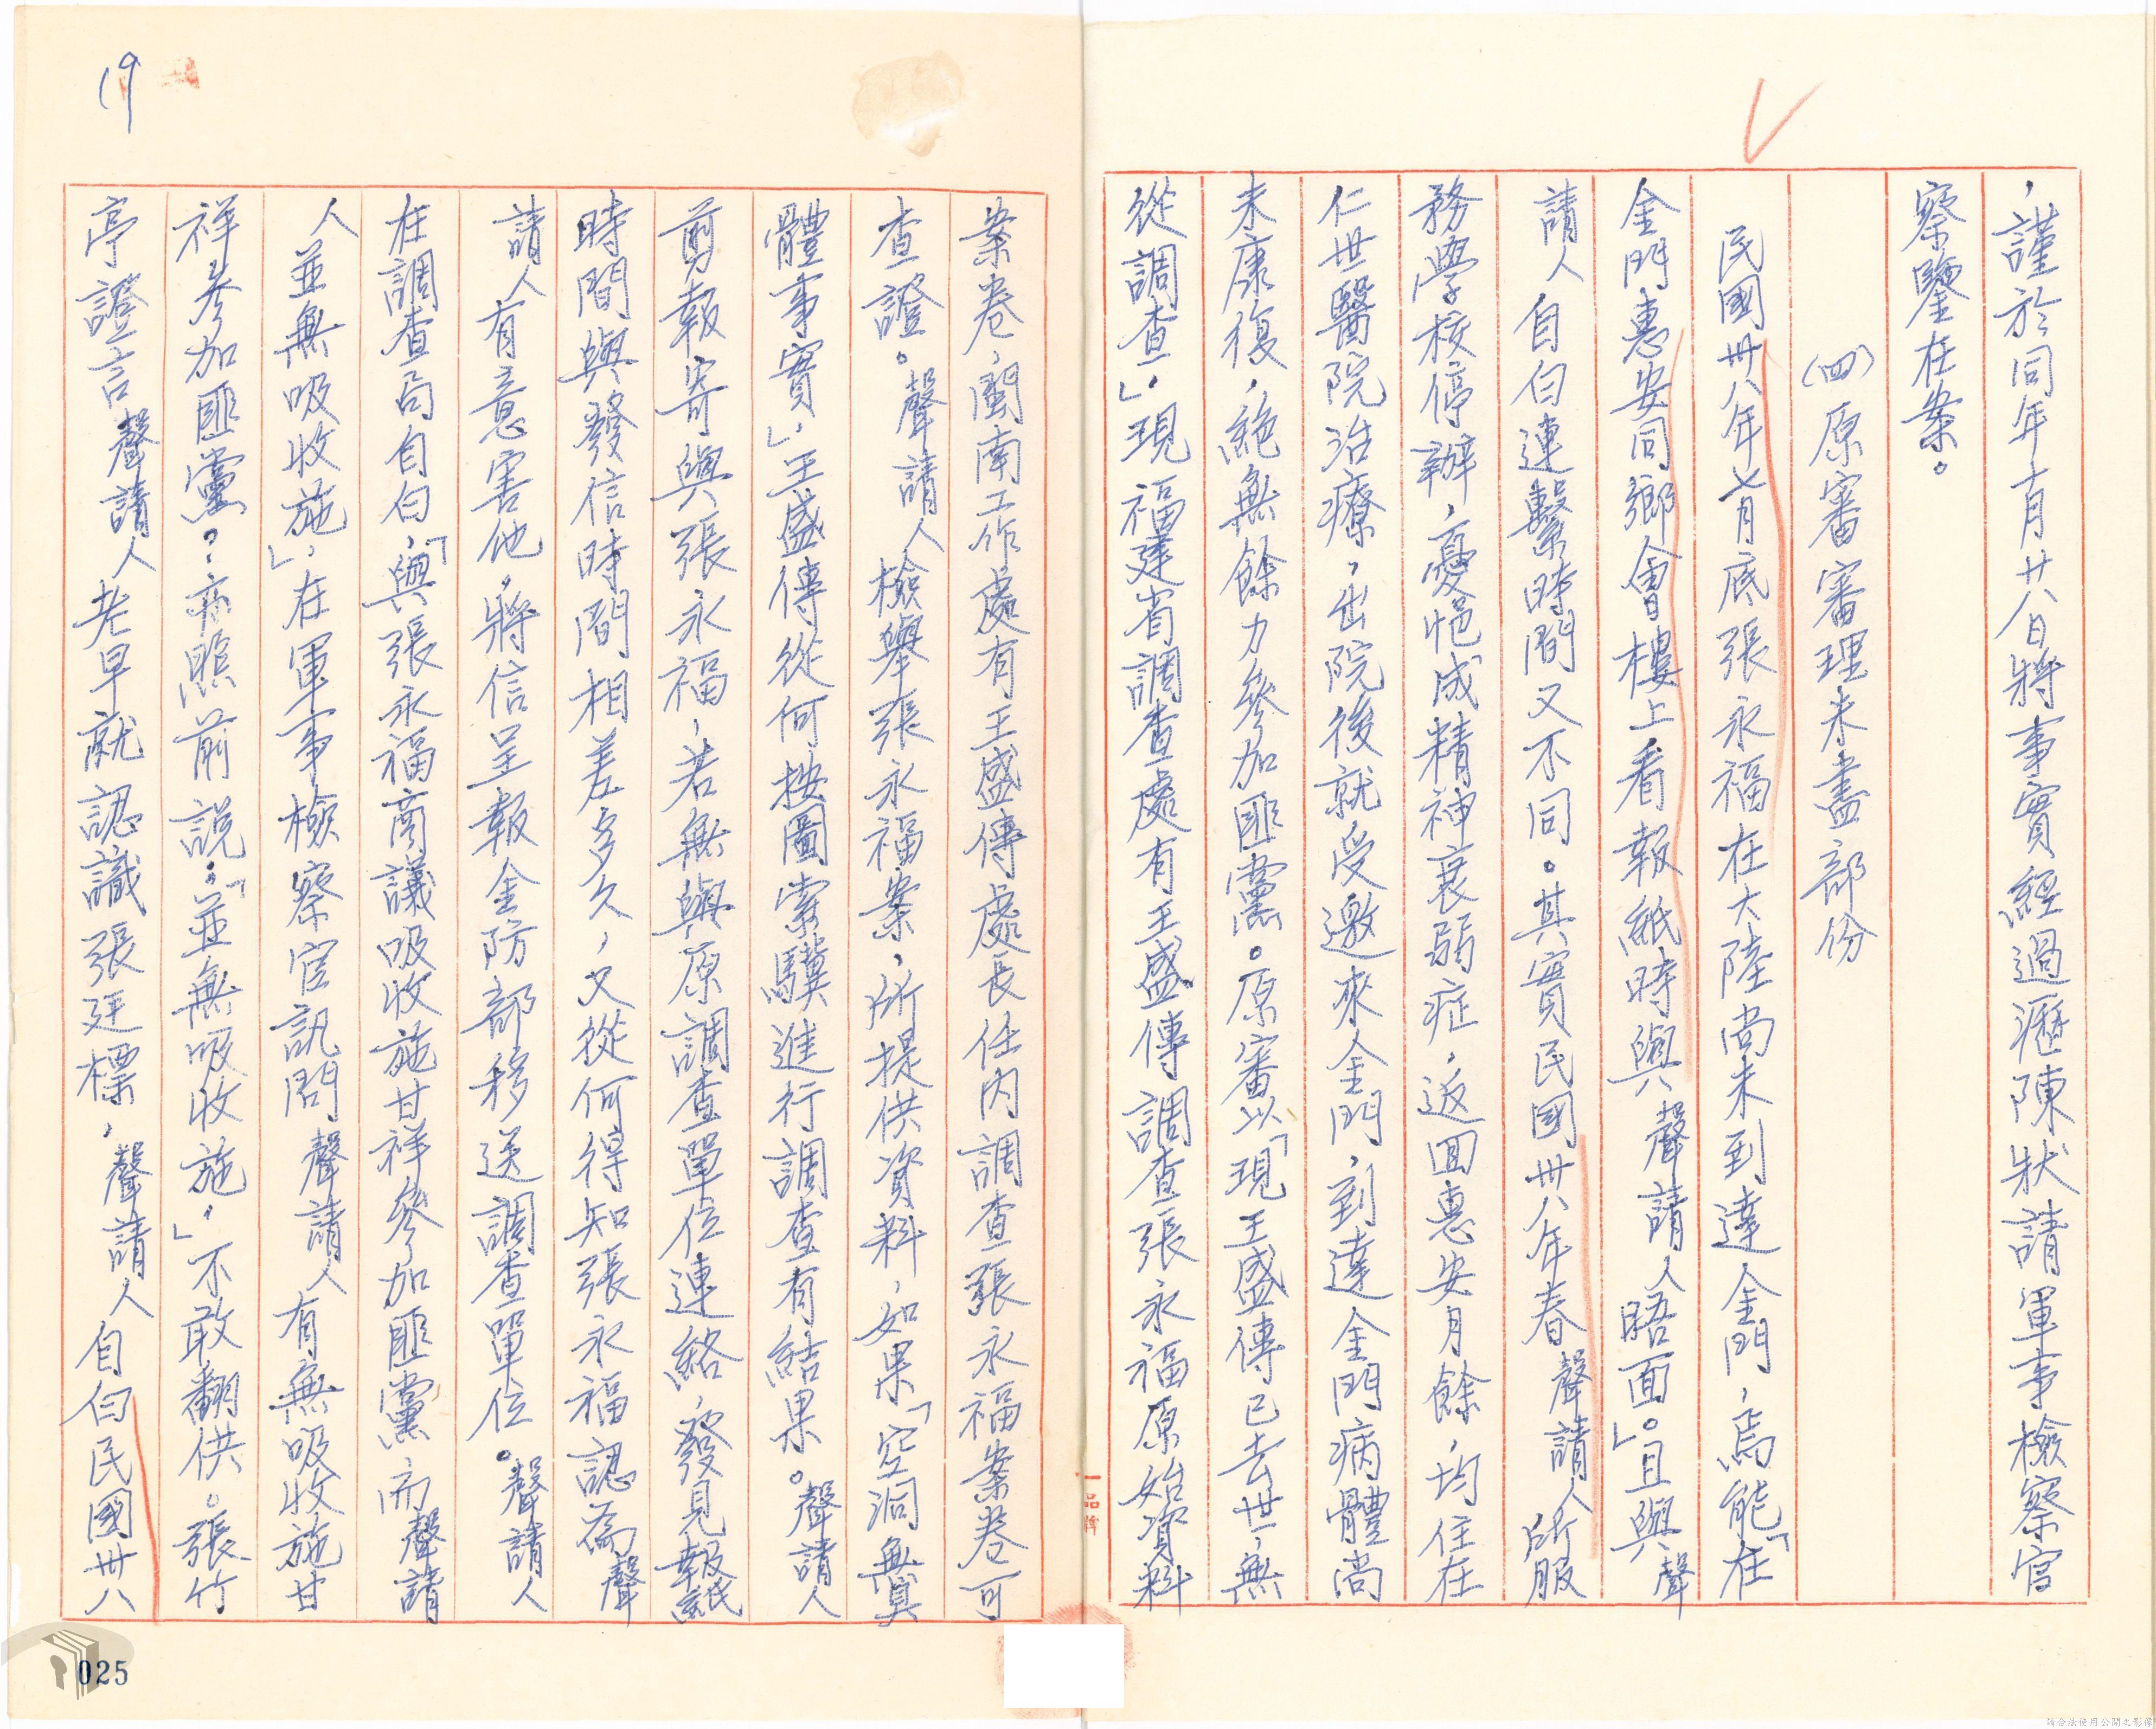 ，謹於同年十月廿八日將事實經過瀝陳狀請軍事檢察官
察鑒在案。
(四)原審審理未盡部份
民國卅八年七月底張永福在大陸尚未到達金門，焉能「在
金門惠安同鄉會樓上看報紙時與聲請人晤面」。且與聲
請人自白連繫時間又不同。其實民國卅八年春聲請人所服
務學校停辦，憂悒成精神衰弱症，返回惠安月餘，均住在
仁世醫院治療，出院後就受邀來金門，到達金門病體尚
未康復，絕無餘力參加匪黨。原審以「現王盛傳已去世，無
從調查」，現福建省調查處有王盛傳調查張永福原始資料
案卷，閩南工作處有王盛傳處長任內調查張永福案卷可
查證。聲請人檢舉張永福案，所提供資料，如果「空洞無具
體事實」，王盛傳從何按圖索驥進行調查有結果。聲請人
剪報寄與張永福，若無與原調查單位連絡，發見報紙
時間與發信時間相差多久，又從何得知張永福認為聲
請人有意害他，將信呈報金防部移送調查單位。聲請人
在調查局自白，「與張永福商議吸收施甘祥參加匪黨而聲請
人並無吸收施」，在軍事檢察官訊問聲請人有無吸收施甘
祥參加匪黨？亦照前說：「並無吸收施」，不敢翻供。張竹
亭證言聲請人老早就認識張廷標，聲請人自白民國卅八
19
025
請合法使用公開之影像